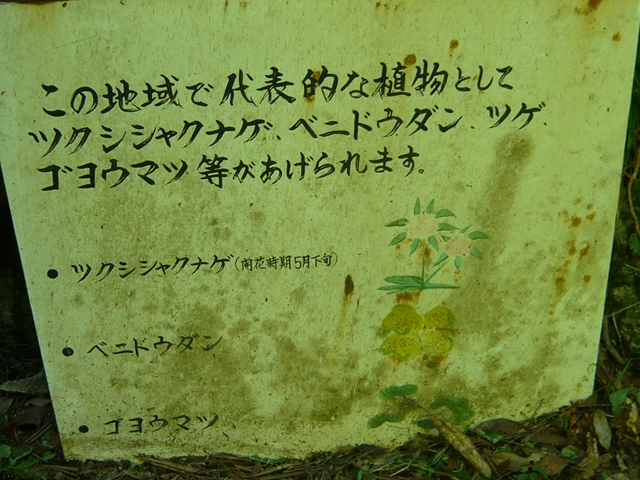 この地域で代表的な植物として
ツクシシャクナゲ、ベニドウダン、ツゲ、
ゴヨウマツ等があげられます。
● ツクシシャクナゲ(開花時期5月下旬)
● ベニドウダン
● ゴヨウマツ